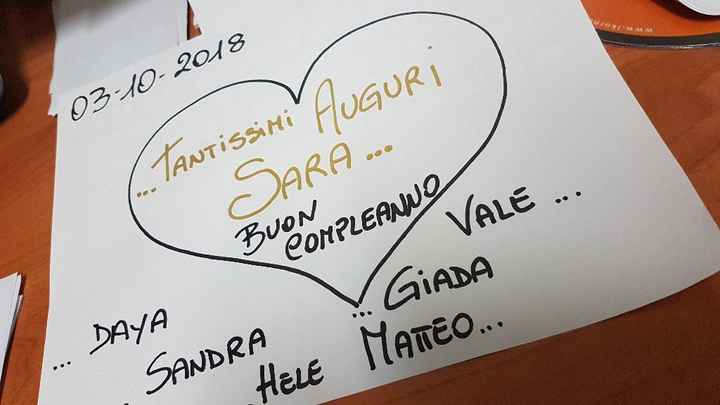 03-10-2018
... TANTISSIMI AUGURI
SARA ...
BUON
COMPLEANNO
VALE ...
... GIADA
... DAYA
SANDRA
HELE MATTEO...